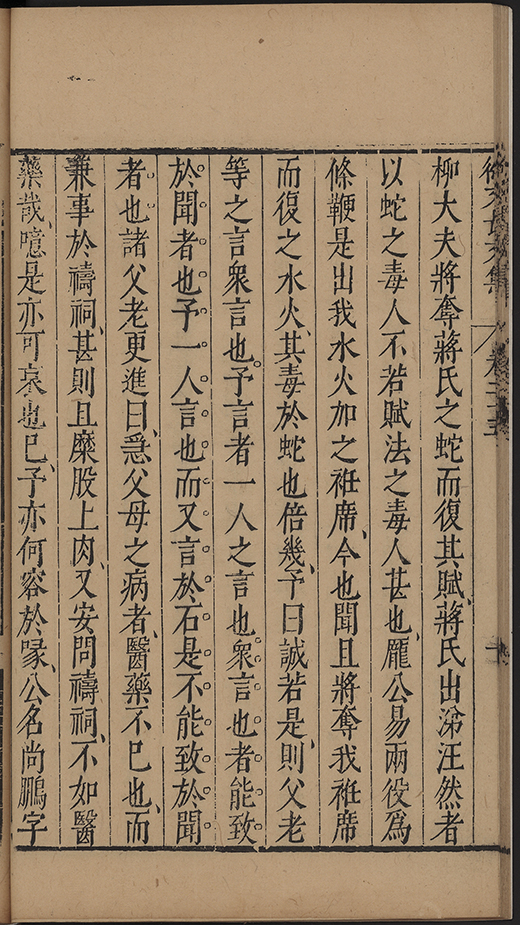 徐文長文集　卷二十五
柳大夫將奪蔣氏之蛇而復其賦蔣氏出涕汪然者
以蛇之毒人不若賦法之毒人甚也龐公易兩役爲
條鞭是出我水火加之袵席今也聞且將奪我袵席
而復之水火其毒於蛇也倍幾予曰誠若是則父老
等之言衆言也予言者一人之言也衆言也者能致
於聞者也予一人言也而又言於石是不能致於聞
者也諸父老更進曰急父母之病者醫藥不已也而
兼事於禱祠甚則且糜股上肉又安問禱祠不如醫
藥哉噫是亦可哀也已予亦何容於喙公名尚鵬字